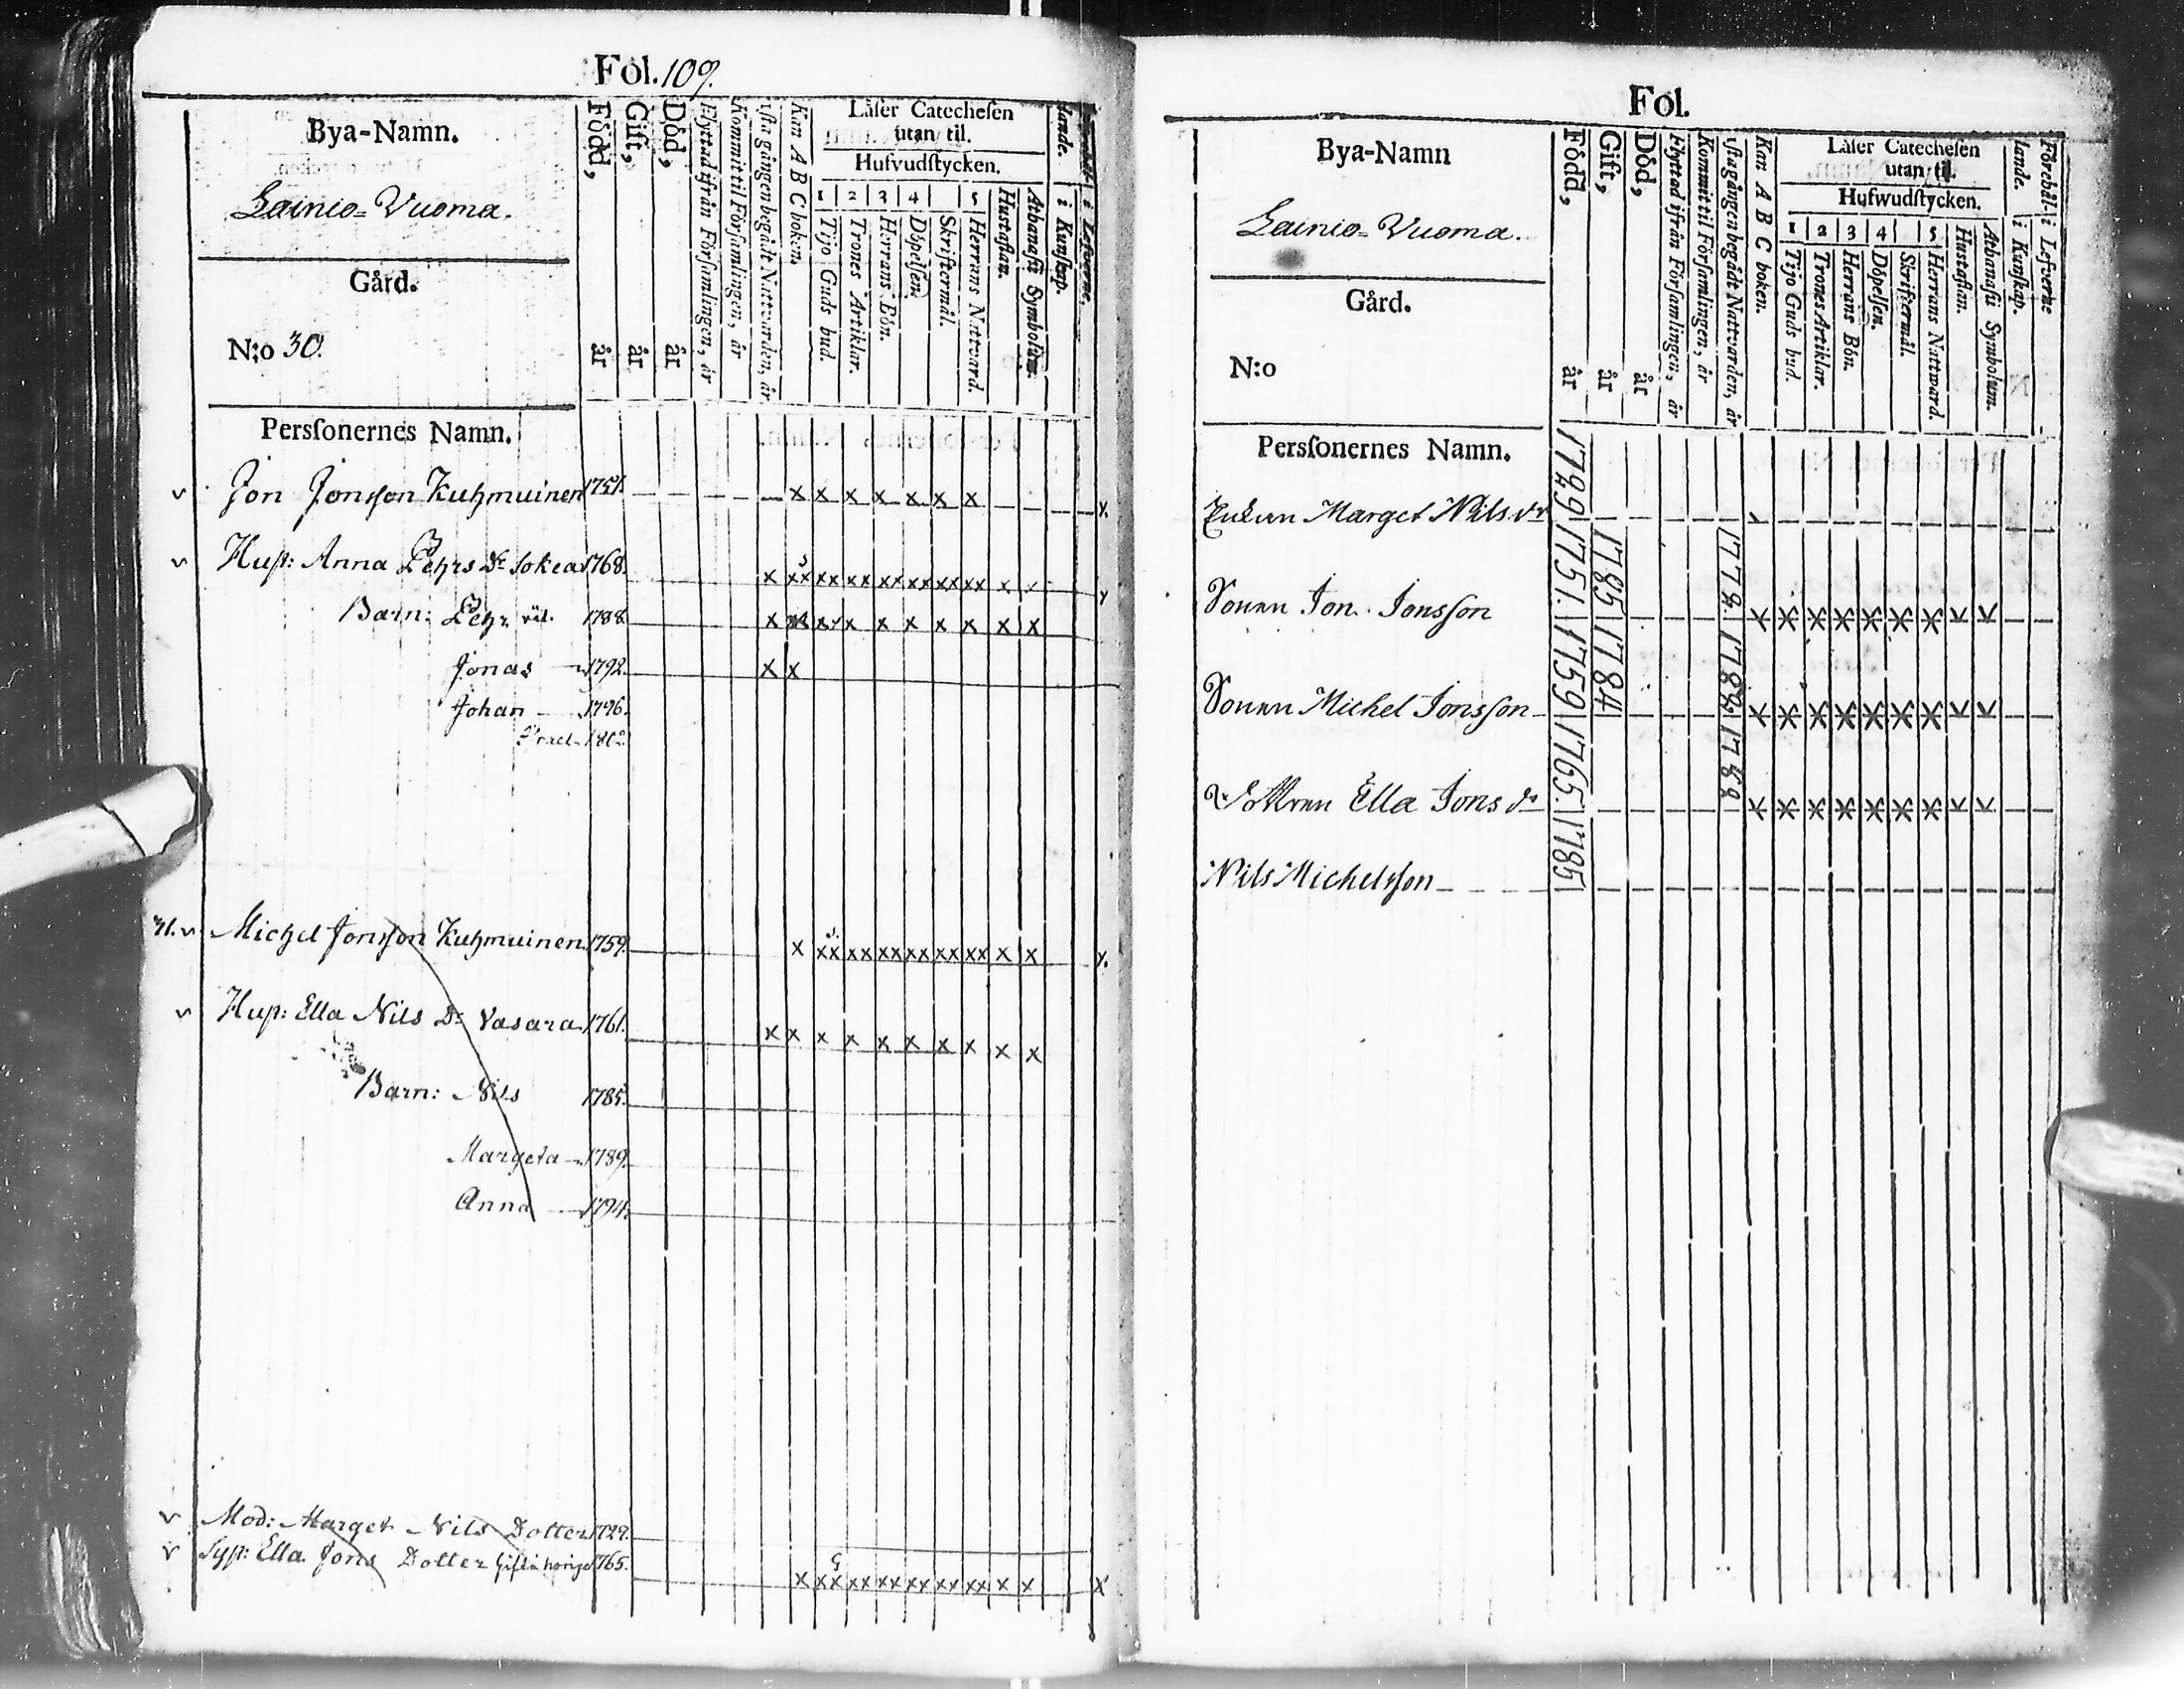 Fol. 109.
Bya-Namn.
Lainio=Vuoma.
Gård.
N:o 30.
Persſonernes Namn.
Född, år
Gift, år
Död, år
Flyttad ifrån Förſamlingen, år
Kommit til Förſamlingen, år
1ſta gången begådt Nattvarden, år
Kan A B C boken.
Läſer Catecheſen
utan til.
Hufvudſtycken.
1 2 3 4 5
Tijo Guds bud.
Trones Artiklar.
Herrans Bön.
Döpelſen.
Skriftermål.
Herrans Nattvard.
Huſtaflan.
Athanaſii Symbolum.
lande. i Kunſkap.
i Lefverne.
v Jon Jonsſon Kuhmuinen 1751. x x x x x x x x.
v Huſ: Anna Pehrs Dr Sokea 1768. x xx xx xx xx xx xx xx x x
Barn: Pehr 1788. x x x x x x x x x
Jonas 1792. x x
Johan 1796.
Israel 1802
31. v Michel Jonsſon Kuhmuinen 1759. x xx xx xx xx xx xx x x x.
v Huſ: Ella Nils Dr Vasara 1761. x x x x x x x x x x
Barn: Nils 1785.
Margeta 1789.
Anna 1794.
v Mod: Marget Nils Dotter 1729.
v Syſt: Ella Jons Dotter 1765. x xx xx xx xx xx xx x x x
Fol.
Bya-Namn
Lainio=Vuoma.
Gård.
N:o
Persſonernes Namn.
Född, år
Gift, år
Död, år
Flyttad ifrån Förſamlingen, år
Kommit til Förſamlingen, år
1ſta gången begådt Nattvarden, år
Kan A B C boken.
Läſer Catecheſen
utan til.
Hufwudſtycken.
1 2 3 4 5
Tijo Guds bud.
Trones Artiklar.
Herrans Bön.
Döpelſen.
Skriftermål.
Herrans Nattward.
Huſtaflan.
Athanaſii Symbolum.
Förehål-lande. i Kunſkap.
i Lefverne
Enkan Marget Nils dr 1729
Sonen Jon Jonsſon 1751. 1785
Sonen Michel Jonsſon 1759 1784
Dottren Ella Jons dr 1765.
Nils Michelsſon 1785